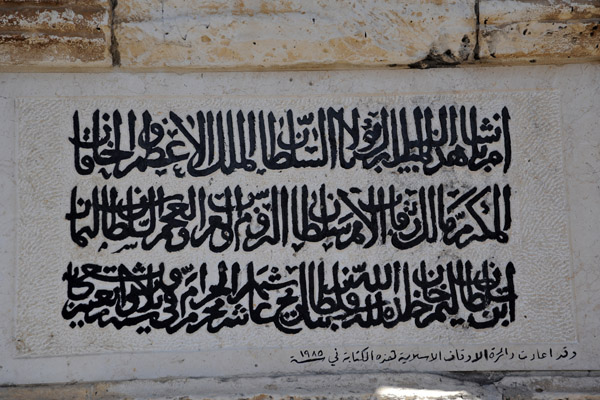 امر بانشاء هذا السبيل المبارك مولانا السلطان الملك الاعظم والخاقان
المكرم مالك رقاب الامم سلطان الروم والعرب والعجم السلطان سليمان
ابن السلطان سليم خان خلد الله ملكه وسلطانه بتاريخ عاشر شهر محرم الحرام سنة
وقد اعادت دائرة الاوقاف الاسلامية هذه الكتابة في سنة ١٩٨٥